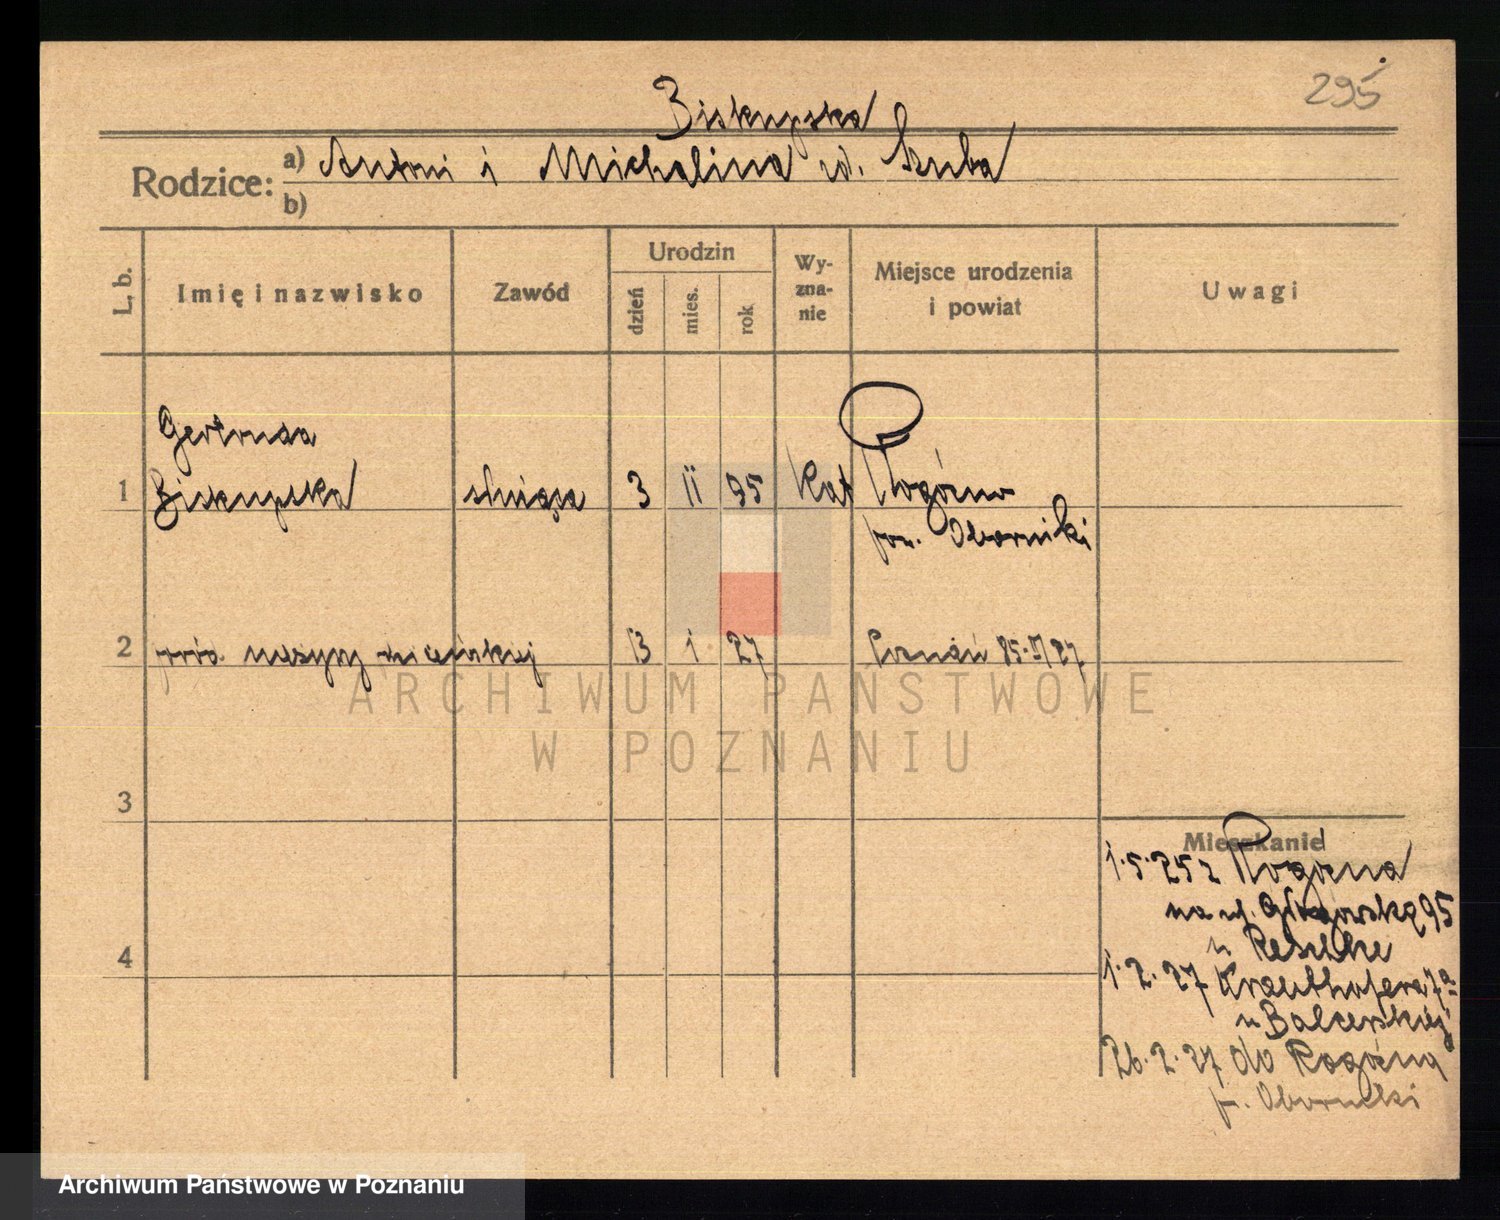 295
Biskupska
Rodzice: a) Antoni i Michalina ur. Szuba
b)
L. b. Imię i nazwisko Zawód Urodzin dzień mies. rok Wyznanie Miejsce urodzenia i powiat Uwagi
Gertruda
1 Biskupska służąca 3 II 95 Kat Rogoźno
pow. Oborniki
2 13 1 27 Poznań
3
Mieszkanie
1.5.25 z Rogoźna
na ul. Głogowską 95
u Reschke
4
1.2.27 Krauthofera 7a
u Balcerskiej
26.2.27 do Rogoźna
p. Oborniki
ARCHIWUM PAŃSTWOWE
W POZNANIU
Archiwum Państwowe w Poznaniu